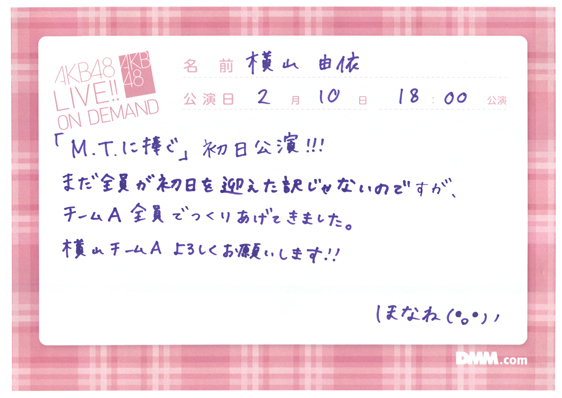 AKB48
LIVE!!
ON DEMAND
AKB
48
名前 横山 由依
公演日 2月10日 18:00 公演
「M.T.に捧ぐ」初日公演!!!
まだ全員が初日を迎えた訳じゃないのですが、
チームA 全員でつくりあげてきました。
横山チームA よろしくお願いします!!
ほなね(•̥ₒ•)ノ
DMM.com